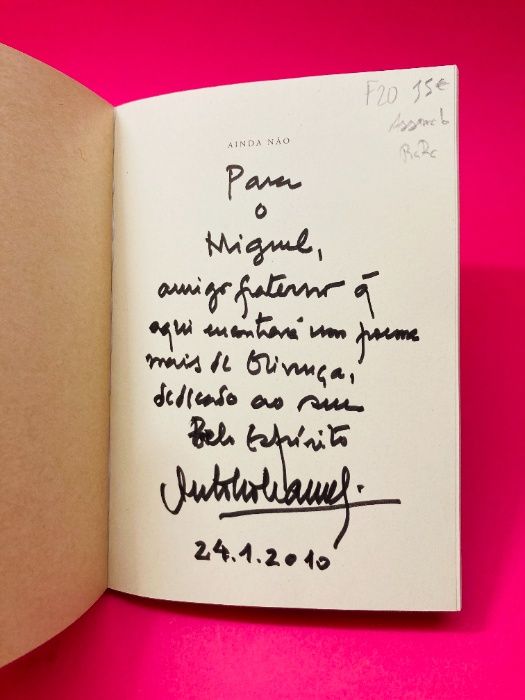 AINDA NÃO
F20 35€
Assinado
RaRo
Para
o
Miguel,
amigo fraterno q
aqui encontrará um poema
mais de Olivença,
dedicado ao seu
Belo Espírito
24.1.2010